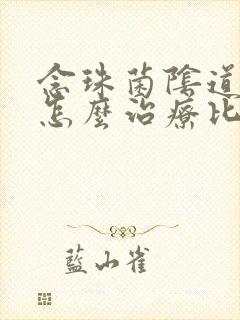 念珠菌陰道
怎麼治療比
藍山雀